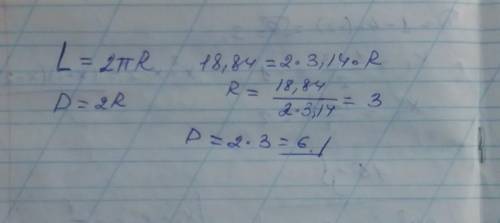 L = 2πR 18,84 = 2 · 3,14 · R
D = 2R R = 18,84 / 2 · 3,14 = 3
D = 2 · 3 = 6